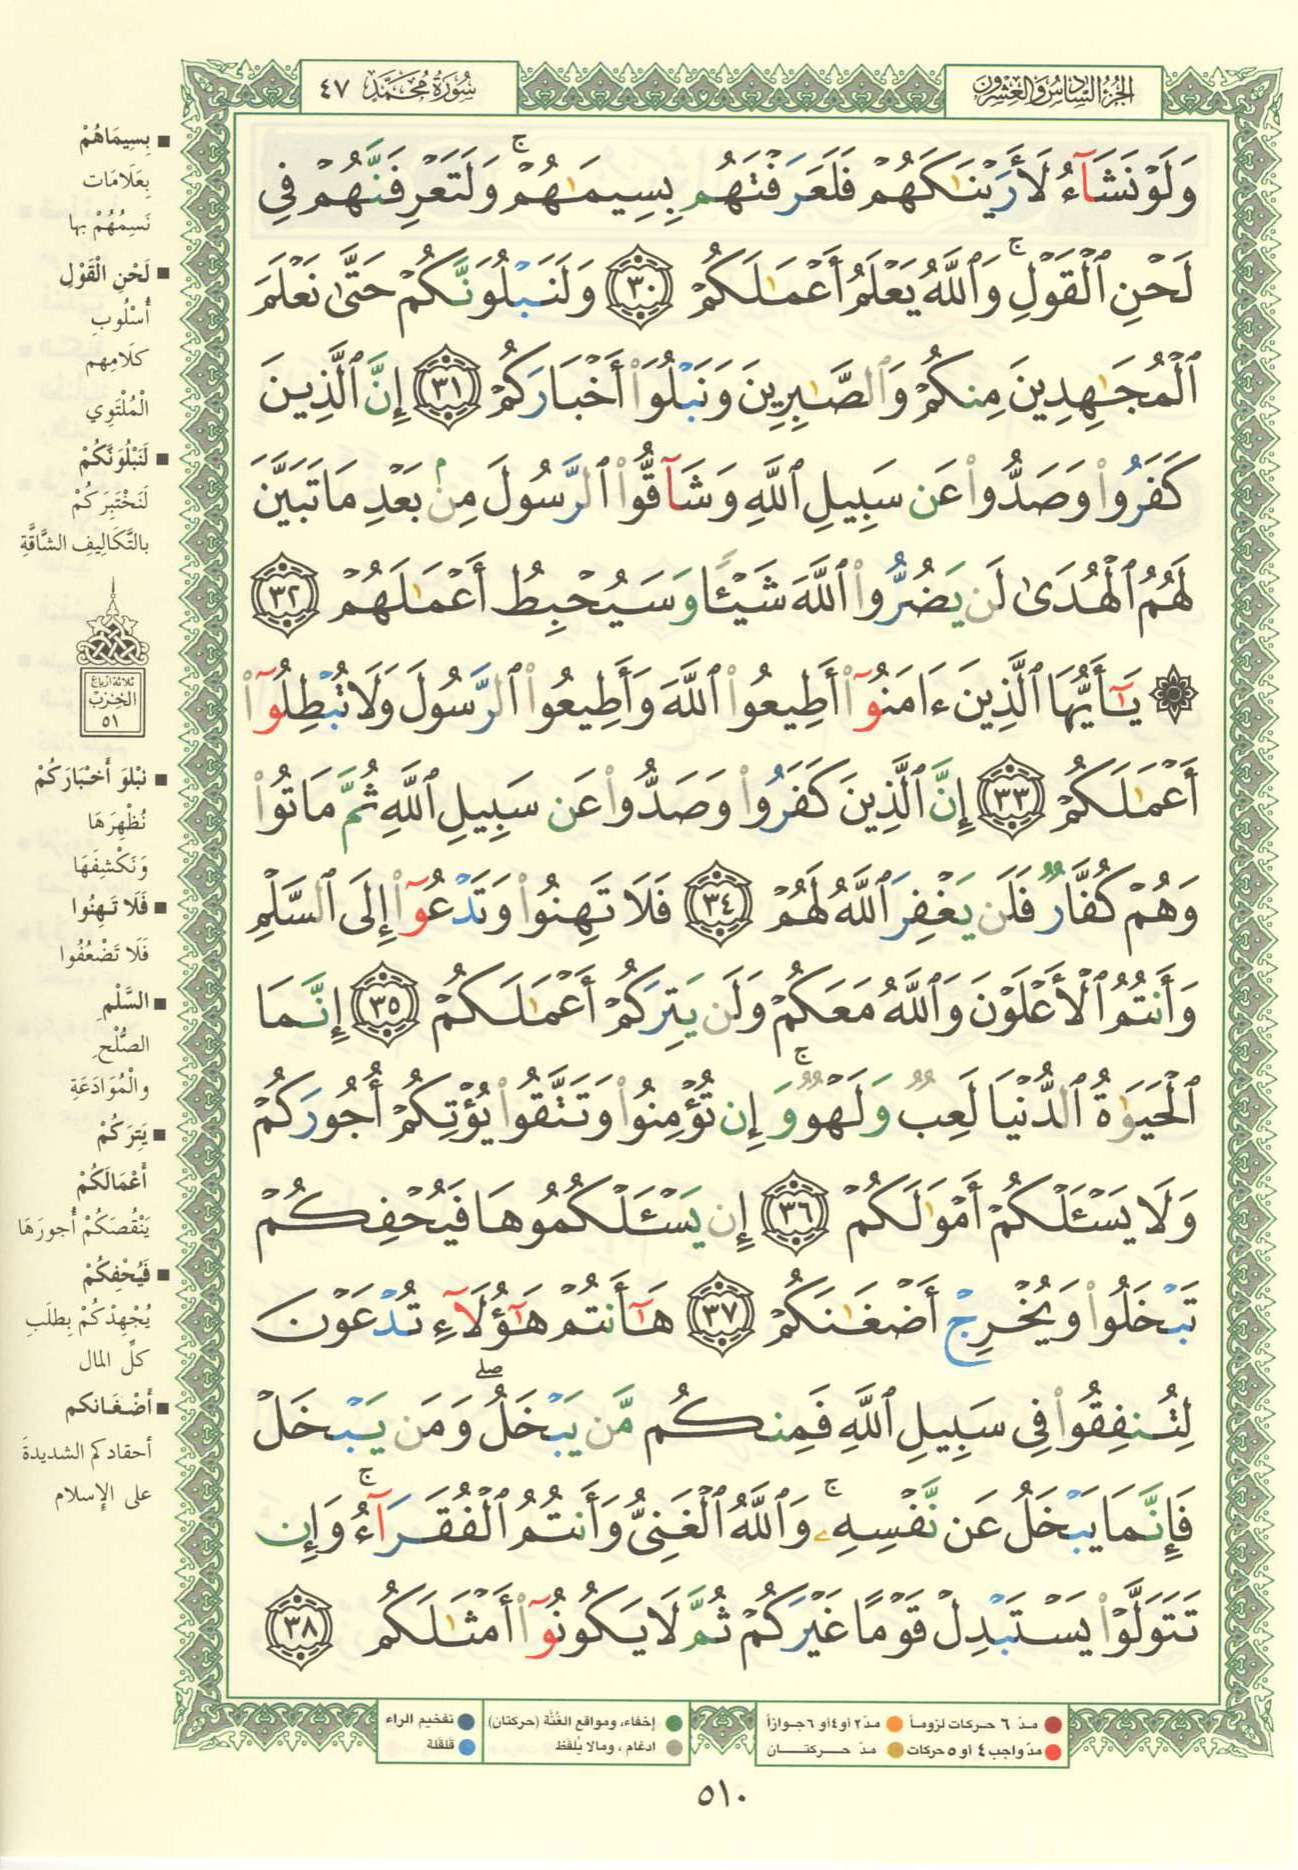 الجزء السادس والعشرون
سورة محمد ٤٧
وَلَوْ نَشَآءُ لَأَرَيْنَٰكَهُمْ فَلَعَرَفْتَهُم بِسِيمَٰهُمْ ۚ وَلَتَعْرِفَنَّهُمْ فِى
لَحْنِ ٱلْقَوْلِ ۚ وَٱللَّهُ يَعْلَمُ أَعْمَٰلَكُمْ ٣٠ وَلَنَبْلُوَنَّكُمْ حَتَّىٰ نَعْلَمَ
ٱلْمُجَٰهِدِينَ مِنكُمْ وَٱلصَّٰبِرِينَ وَنَبْلُوَا۟ أَخْبَارَكُمْ ٣١ إِنَّ ٱلَّذِينَ
كَفَرُوا۟ وَصَدُّوا۟ عَن سَبِيلِ ٱللَّهِ وَشَآقُّوا۟ ٱلرَّسُولَ مِنۢ بَعْدِ مَا تَبَيَّنَ
لَهُمُ ٱلْهُدَىٰ لَن يَضُرُّوا۟ ٱللَّهَ شَيْـًٔا وَسَيُحْبِطُ أَعْمَٰلَهُمْ ٣٢
۞ يَٰٓأَيُّهَا ٱلَّذِينَ ءَامَنُوٓا۟ أَطِيعُوا۟ ٱللَّهَ وَأَطِيعُوا۟ ٱلرَّسُولَ وَلَا تُبْطِلُوٓا۟
أَعْمَٰلَكُمْ ٣٣ إِنَّ ٱلَّذِينَ كَفَرُوا۟ وَصَدُّوا۟ عَن سَبِيلِ ٱللَّهِ ثُمَّ مَاتُوا۟
وَهُمْ كُفَّارٌ فَلَن يَغْفِرَ ٱللَّهُ لَهُمْ ٣٤ فَلَا تَهِنُوا۟ وَتَدْعُوٓا۟ إِلَى ٱلسَّلْمِ
وَأَنتُمُ ٱلْأَعْلَوْنَ وَٱللَّهُ مَعَكُمْ وَلَن يَتِرَكُمْ أَعْمَٰلَكُمْ ٣٥ إِنَّمَا
ٱلْحَيَوٰةُ ٱلدُّنْيَا لَعِبٌ وَلَهْوٌ ۚ وَإِن تُؤْمِنُوا۟ وَتَتَّقُوا۟ يُؤْتِكُمْ أُجُورَكُمْ
وَلَا يَسْـَٔلْكُمْ أَمْوَٰلَكُمْ ٣٦ إِن يَسْـَٔلْكُمُوهَا فَيُحْفِكُمْ
تَبْخَلُوا۟ وَيُخْرِجْ أَضْغَٰنَكُمْ ٣٧ هَٰٓأَنتُمْ هَٰٓؤُلَآءِ تُدْعَوْنَ
لِتُنفِقُوا۟ فِى سَبِيلِ ٱللَّهِ فَمِنكُم مَّن يَبْخَلُ ۖ وَمَن يَبْخَلْ
فَإِنَّمَا يَبْخَلُ عَن نَّفْسِهِۦ ۚ وَٱللَّهُ ٱلْغَنِىُّ وَأَنتُمُ ٱلْفُقَرَآءُ ۚ وَإِن
تَتَوَلَّوْا۟ يَسْتَبْدِلْ قَوْمًا غَيْرَكُمْ ثُمَّ لَا يَكُونُوٓا۟ أَمْثَٰلَكُم ٣٨
■ بِسِيمَاهُمْ
بِعَلَامَات
نَسِمُهُمْ بها
■ لَحْنِ الْقَوْلِ
أُسْلُوبِ
كلَامِهِم
الْمُلْتَوِي
■ لَنَبْلُوَنَّكُمْ
لَنَخْتَبِرَكُمْ
بالتَّكَالِيفِ الشَّاقَّةِ
ثلاثة أرباع
الحزب
٥١
■ نَبْلُوَ أَخْبَارَكُمْ
نُظْهِرَهَا
وَنَكْشِفَهَا
■ فَلَا تَهِنُوا
فَلَا تَضْعُفُوا
■ السَّلْمِ
الصُّلْحِ
والْمُوَادَعَةِ
■ يَتِرَكُمْ
أَعْمَالَكُمْ
يَنْقُصَكُمْ أُجورَهَا
■ فَيُحْفِكُمْ
يُجْهِدْكُمْ بِطلَبِ
كلِّ المال
■ أَضْغَانكم
أحقادكم الشديدةَ
على الإسلام
مدّ ٦ حركات لزوماً مدّ٢ أو٤أو ٦جوازاً
مدّ واجب٤ أو ٥حركات مدّ حركتان
إخفاء، ومواقع الغُنَّة (حركتان)
ادغام ، ومالا يُلفَظ
تفخيم الراء
قلقلة
٥١٠